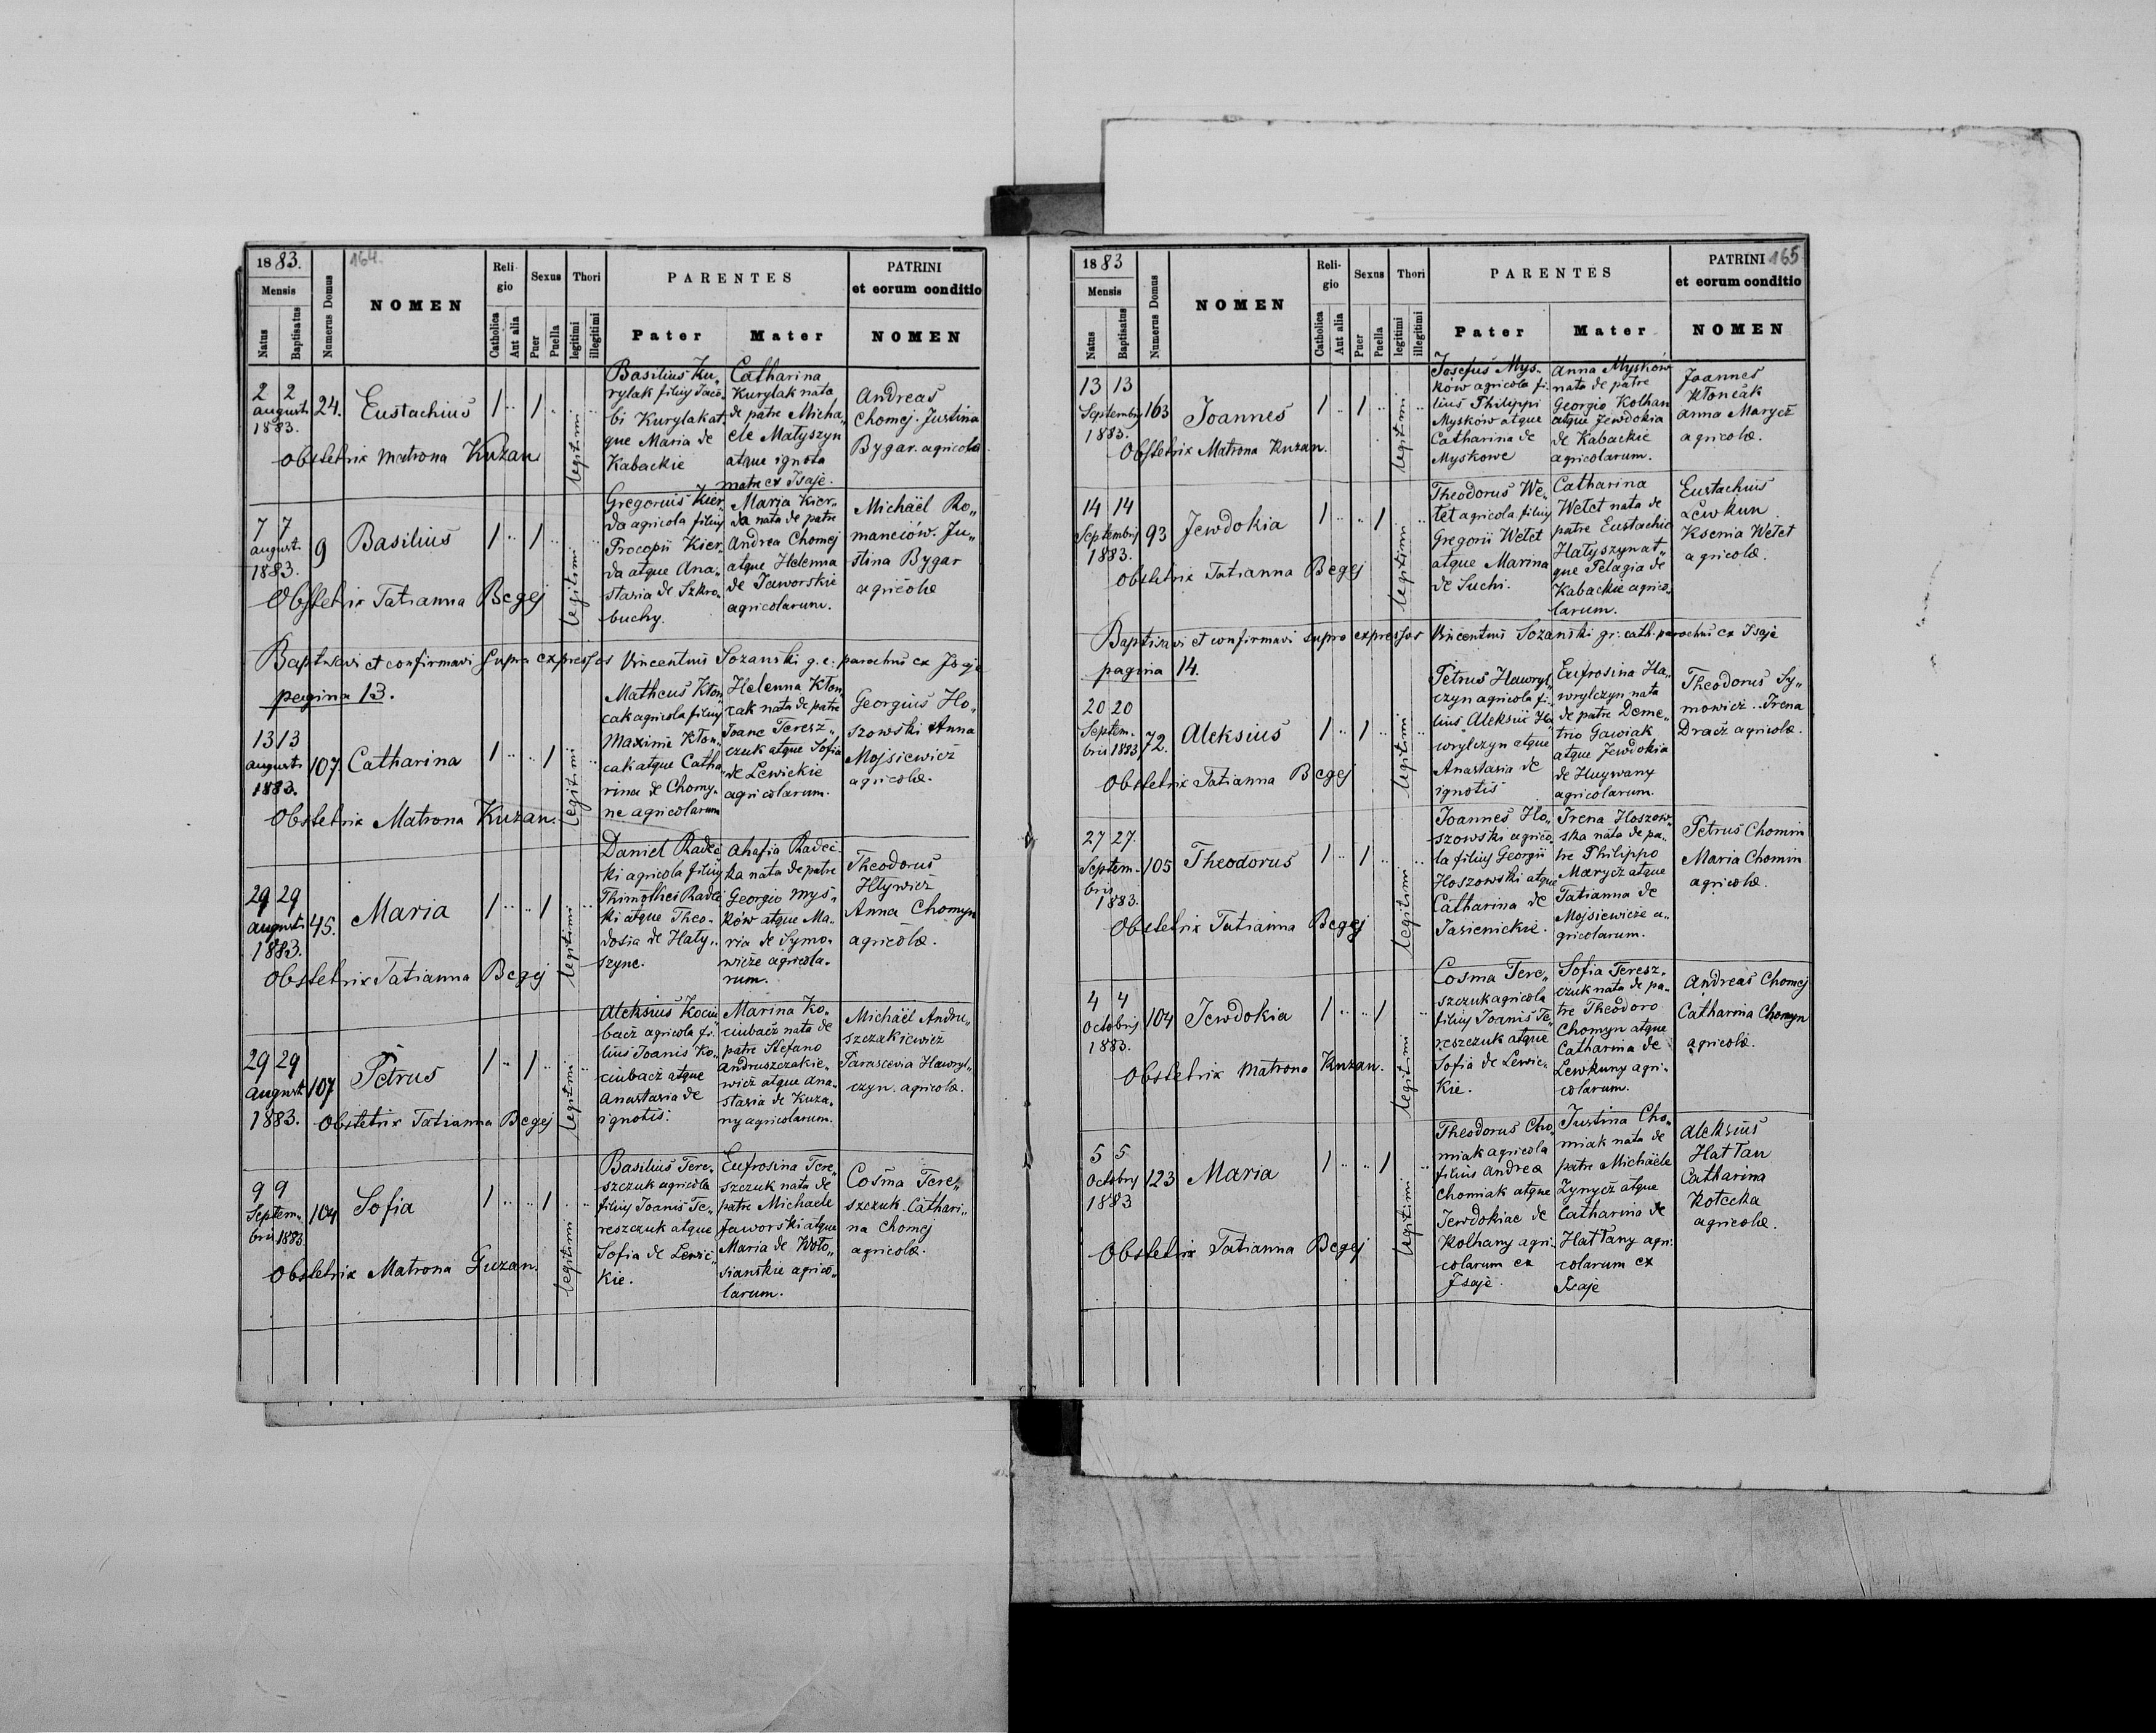 1883.
164.
Mensis
Natus
Baptisatus
Numerus Domus
NOMEN
Reli-
gio
Catholica
Aut alia
Sexus
Puer
Puella
Thori
legitimi
illegitimi
PARENTES
Pater
Mater
PATRINI
et eorum conditio
NOMEN
2 2
augusti
1883.
24.
Eustachius
1 .. 1 ..
legitimi
Basilius Ku„
rylak filius Jaco„
bi Kurylak at„
que Maria de
Kabackie
Catharina
Kurylak nata
de patre Micha„
ele Matyszyn
atque ignota
matre ex Isaje.
Andreas
Chomej. Justina
Bygar. agricolæ
Obstetrix Matrona Kuzan
7 7
august.
1883.
9
Basilius
1 .. 1 ..
legitimi
Gregorius Kier„
da agricola filius
Procopii Kier„
da atque Ana„
stasia de Szkro„
buchy.
Maria Kier„
da nata de patre
Andrea Chomej
atque Helenna
de Jaworskie
agricolarum.
Michaël Ro„
manciów. Ju„
stina Bygar
agricolæ
Obstetrix Tatianna Begej
Baptisavi et confirmavi supra expressos Vincentius Sozanski g. c. parochus ex Isaje
pagina 13.
13 13
augusti
1883.
107.
Catharina
1 .. .. 1
legitimi
Matheus Kłon„
cak agricola filius
Maximi Kłon„
cak atque Catha„
rina de Chomy„
ne agricolarum
Helenna Kłon„
cak nata de patre
Joane Teresz„
czuk atque Sofia
de Lewickie
agricolarum.
Georgius Ho„
szowski Anna
Mojsiewicz
agricolæ.
Obstetrix Matrona Kuzan.
29 29
augusti
1883.
45.
Maria
1 .. .. 1
legitimi
Daniel Radec„
ki agricola filius
Thimothei Radec„
ki atque Theo„
dosia de Haty„
szyne.
Ahafia Radec„
ka nata de patre
Georgio Mys„
ków atque Ma„
ria de Symo„
wicze agricola„
rum.
Theodorus
Hlywicz
Anna Chomyn
agricolæ.
Obstetrix Tatianna Begej
29 29
august.
1883.
107
Petrus
1 .. 1 ..
legitimi
Aleksius Kociu„
bacz agricola fi„
lius Joanis Ko„
ciubacz atque
Anastasia de
ignotis.
Marina Ko„
ciubacz nata de
patre Stefano
Andruszczakie„
wicz atque Ana„
stasia de Kuza„
ny agricolarum.
Michaël Andru„
szczakiewicz
Parascevia Hawryl„
czyn. agricolæ.
Obstetrix Tatianna Begej
9 9
Septem„
bris 1883
104
Sofia
1 .. .. 1
legitimi
Basilius Tere„
szczuk agricola
filius Joanis Te„
reszczuk atque
Sofia de Lewic„
kie.
Eufrosina Tere„
szczuk nata de
patre Michaele
Jaworski atque
Maria de Woło„
sianskie agrico„
larum.
Cosma Tere„
szczuk. Cathari„
na Chomej
agricolæ.
Obstetrix Matrona Guzan.
1883
Mensis
Natus
Baptisatus
Numerus Domus
NOMEN
Reli-
gio
Catholica
Aut alia
Sexus
Puer
Puella
Thori
legitimi
illegitimi
PARENTES
Pater
Mater
PATRINI
165
et eorum conditio
NOMEN
13 13
Septembris
1883.
163
Joannes
1 .. 1 ..
legitimi
Josefus Mys„
ków agricola fi„
lius Philippi
Mysków atque
Catharina de
Myskowe
Anna Mysków
nata de patre
Georgio Kolhan
atque Jewdokia
de Kabackie
agricolarum.
Joannes
Kłoncak
Anna Marycz
agricolæ.
Obstetrix Matrona Kuzan.
14 14
Septembris
1883.
93
Jewdokia
1 .. .. 1
legitimi
Theodorus We„
tet agricola filius
Gregorii Wetet
atque Marina
de Suchi.
Catharina
Wetet nata de
patre Eustachio
Hatyszyn at„
que Pelagia de
Kabackie agrico„
larum.
Eustachius
Lewkun
Ksenia Wetet
agricolæ.
Obstetrix Tatianna Begej
Baptisavi et confirmavi supra expressos Vincentius Sozanski gr. cath. parochus ex Isaje
pagina 14.
20 20
Septem„
bris 1883
72.
Aleksius
1 .. 1 ..
legitimi
Petrus Hawryl„
czyn agricola fi„
lius Aleksii Ha„
wrylczyn atque
Anastasia de
ignotis
Eufrosina Ha„
wrylczyn nata
de patre Deme„
trio Gawiak
atque Jewdokia
de Huywany
agricolarum.
Theodorus Sy„
mowicz. Irena
Dracz agricolæ.
Obstetrix Tatianna Begej
27 27.
Septem„
bris
1883.
105
Theodorus
1 .. 1 ..
legitimi
Joannes Ho„
szowski agrico„
la filius Georgii
Hoszowski atque
Catharina de
Jasienickie.
Irena Hoszow„
ska nata de pa„
tre Philippo
Marycz atque
Tatianna de
Mojsiewicze a„
gricolarum.
Petrus Chomin
Maria Chomin
agricolæ.
Obstetrix Tatianna Begej
4 4
Octobris
1883.
104
Jewdokia
1 .. .. 1
legitimi
Cosma Tere„
szczuk agricola
filius Joanis Te„
reszczuk atque
Sofia de Lewic„
kie.
Sofia Teresz„
czuk nata de pa„
tre Theodoro
Chomyn atque
Catharina de
Lewkuny agri„
colarum.
Andreas Chomej
Catharina Chomyn
agricolæ.
Obstetrix Matrona Kuzan.
5 5
Octobris
1883
123
Maria
1 .. .. 1
legitimi
Theodorus Cho„
miak agricola
filius Andreæ
Chomiak atque
Jewdokiae de
Kolhany agri„
colarum ex
Isaje.
Justina Cho„
miak nata de
patre Michaele
Zynycz atque
Catharina de
Hattany agri„
colarum ex
Isaje
Aleksius
Hattan
Catharina
Kotecka
agricolæ.
Obstetrix Tatianna Begej